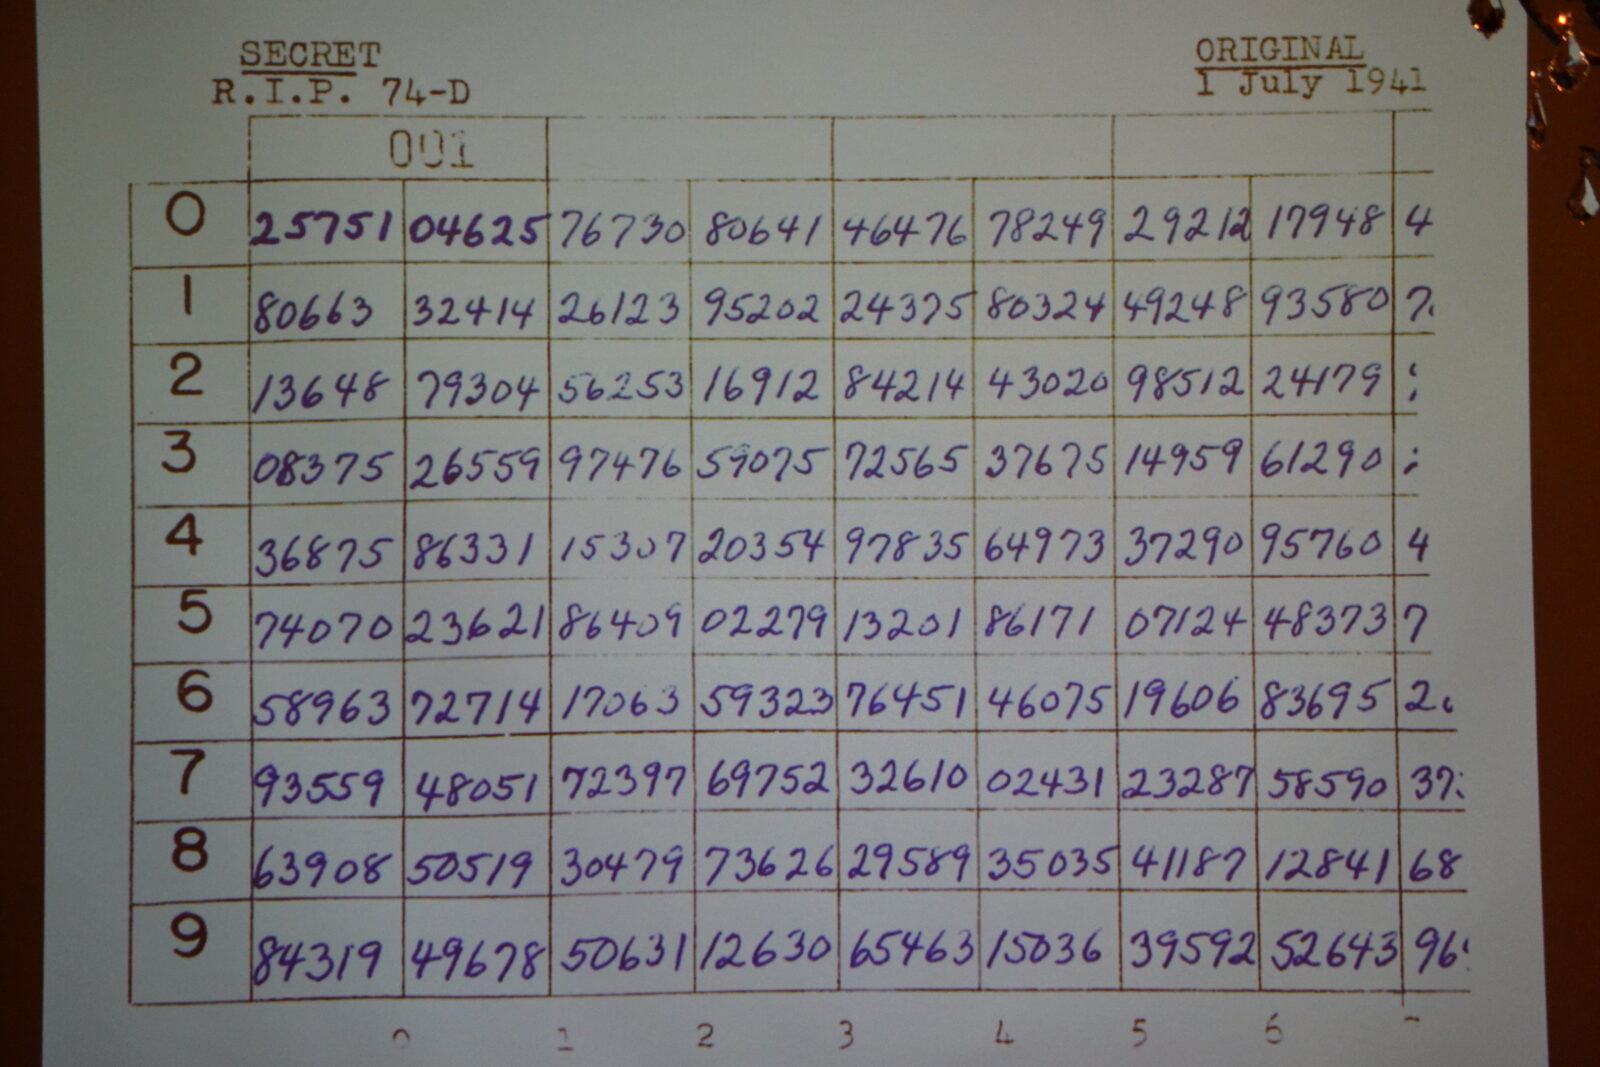 SECRET
R.I.P. 74-D
ORIGINAL
1 July 1941
001
0 25751 04625 76730 80641 46476 78249 29212 17948 4
1 80663 32414 26123 95202 24375 80324 49248 93580 7
2 13648 79304 56253 16912 84214 43020 98512 24179
3 08375 26559 97476 59075 72565 37675 14959 61290
4 36875 86331 15307 20354 97835 64973 37290 95760 4
5 74070 23621 86409 02279 13201 86171 07124 48373 7
6 58963 72714 17063 59323 76451 46075 19606 83695 2
7 93559 48051 72397 69752 32610 02431 23287 58590 37
8 63908 50519 30479 73626 29589 35035 41187 12841 68
9 84319 49678 50631 12630 65463 15036 39592 52643 96
0 1 2 3 4 5 6